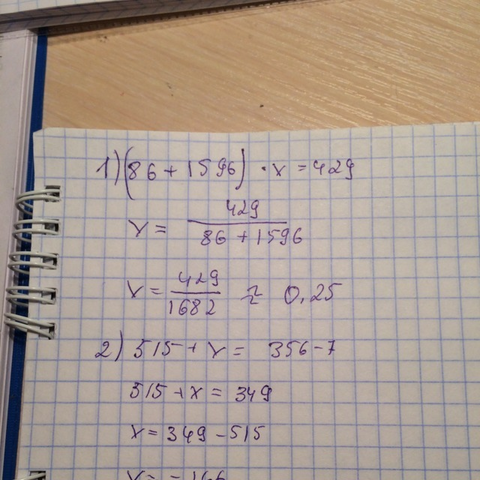 1) (86 + 1596) · x = 429
x = 429 / 86 + 1596
x = 429 / 1682 ≈ 0,25
2) 515 + x = 356 - 7
515 + x = 349
x = 349 - 515
x = -166